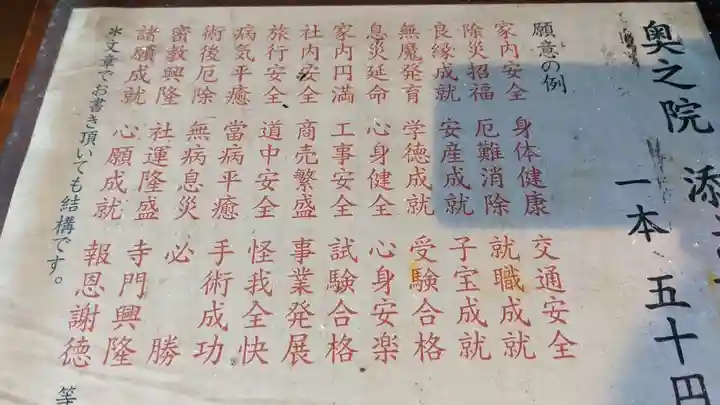 奥之院 添
一本 五十円
願意の例
家内安全 身体健康 交通安全
除災招福 厄難消除 就職成就
良縁成就 安産成就 子宝成就
無魔発育 学徳成就 受験合格
息災延命 心身健全 心身安楽
家内円満 工事安全 試験合格
社内安全 商売繁盛 事業発展
旅行安全 道中安全 怪我全快
病気平癒 當病平癒 手術成功
術後厄除 無病息災 必勝
密教興隆 社運隆盛 寺門興隆
諸願成就 心願成就 報恩謝徳 等
※文章でお書き頂いても結構です。